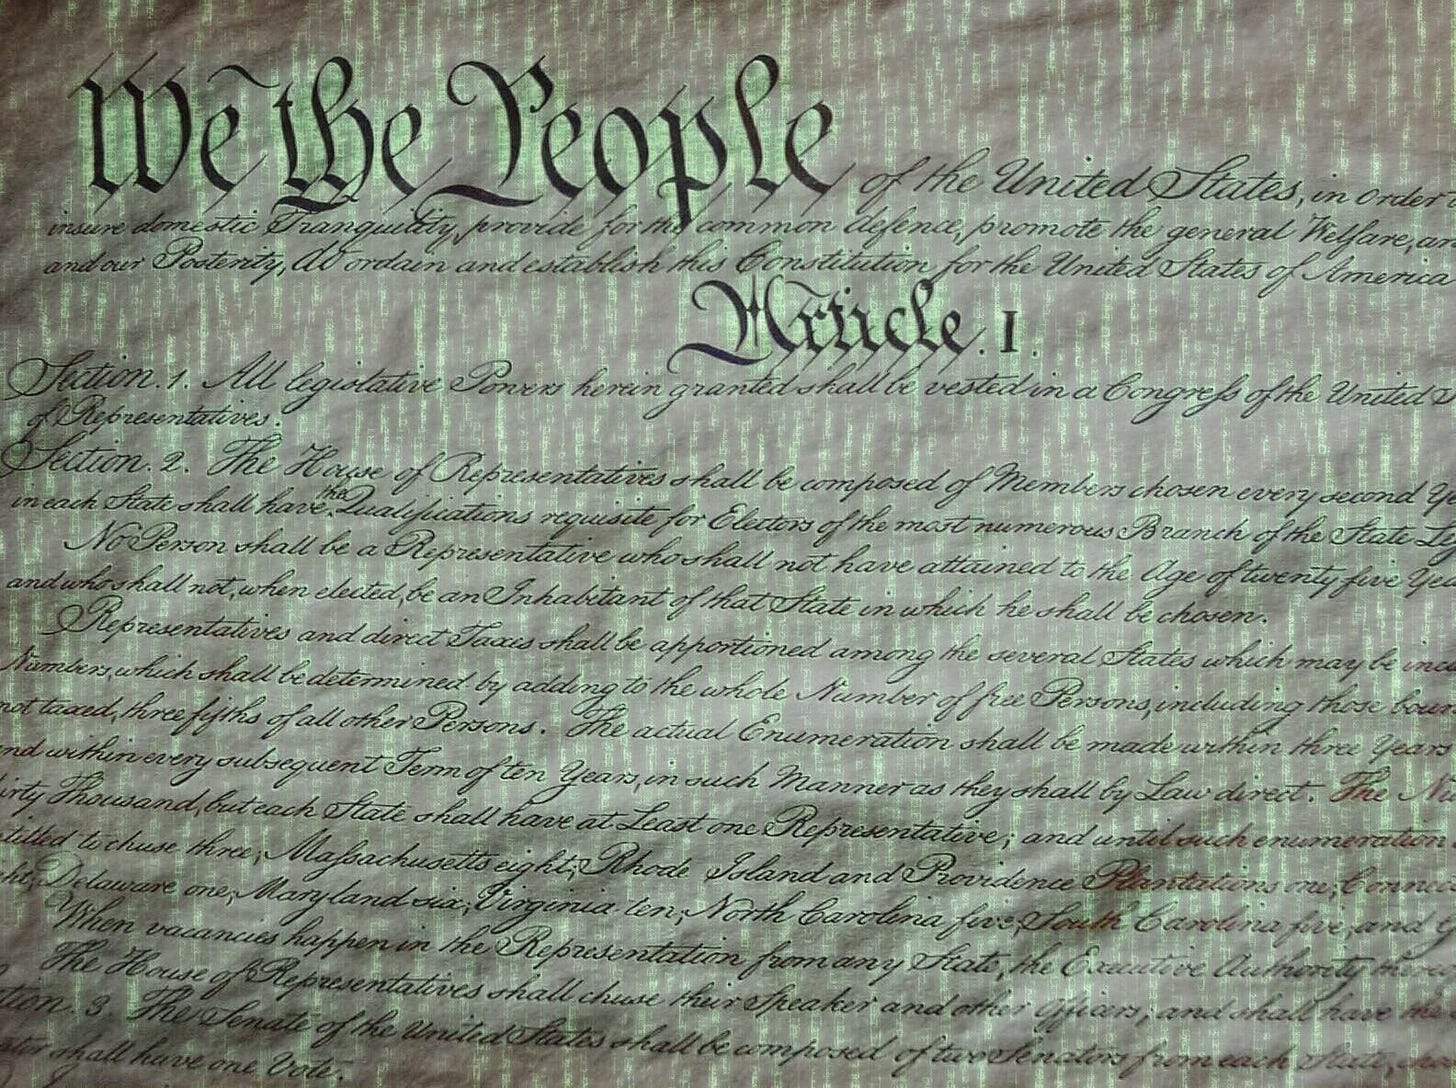 We the People of the United States, in Order
insure domestic Tranquility, provide for the common defence, promote the general Welfare, an
and our Posterity, do ordain and establish this Constitution for the United States of America
Article. I.
Section. 1. All legislative Powers herein granted shall be vested in a Congress of the United S
of Representatives.
Section. 2. The House of Representatives shall be composed of Members chosen every second Y
in each State shall have the Qualifications requisite for Electors of the most numerous Branch of the State Leg
No Person shall be a Representative who shall not have attained to the Age of twenty five Yea
and who shall not, when elected, be an Inhabitant of that State in which he shall be chosen.
Representatives and direct Taxes shall be apportioned among the several States which may be incl
Numbers, which shall be determined by adding to the whole Number of free Persons, including those boun
not taxed, three fifths of all other Persons. The actual Enumeration shall be made within three Years
and within every subsequent Term of ten Years, in such Manner as they shall by Law direct. The N
irty Thousand, but each State shall have at Least one Representative; and until such enumeration
titled to chuse three, Massachusetts eight, Rhode Island and Providence Plantations one, Connec
ht, Delaware one, Maryland six, Virginia ten, North Carolina five, South Carolina five, and
When vacancies happen in the Representation from any State, the Executive Authority there
The House of Representatives shall chuse their Speaker and other Officers; and shall have the
tion. 3. The Senate of the United States shall be composed of two Senators from each State,
ator shall have one Vote.